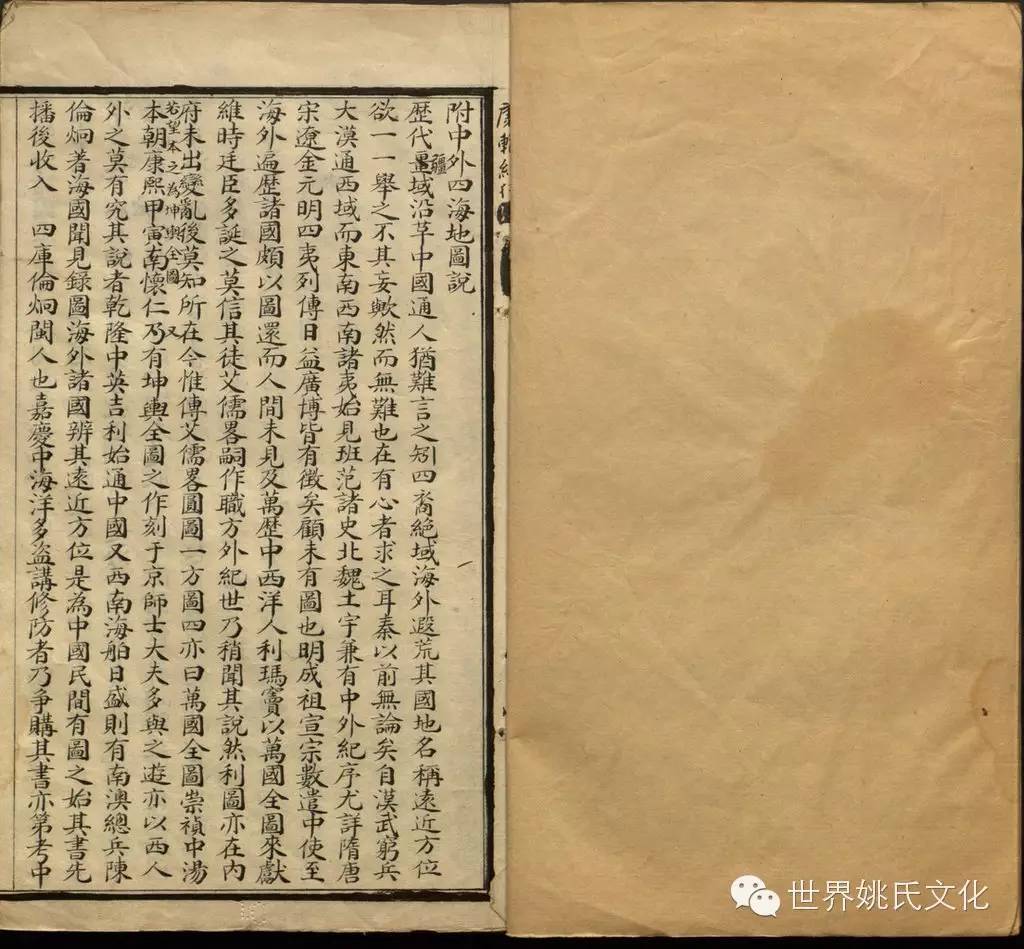 附中外四海地圖說
歷代畺域沿革中國通人猶難言之矧四裔絕域海外遐荒其國地名稱遠近方位
疆
欲一一舉之不其妄歟然而無難也在有心者求之耳秦以前無論矣自漢武窮兵
大漠通西域而東南西南諸夷始見班范諸史北魏土宇兼有中外紀序尤詳隋唐
宋遼金元明四夷列傳日益廣博皆有徵矣顧未有圖也明成祖宣宗數遣中使至
海外遍歷諸國頗以圖還而人間未見及萬歷中西洋人利瑪竇以萬國全圖來獻
維時廷臣多誕之莫信其徒艾儒畧嗣作職方外紀世乃稍聞其說然利圖亦在內
府未出變亂後莫知所在今惟傳艾儒畧圓圖一方圖四亦曰萬國全圖崇禎中湯
若望本之為坤輿全圖 又
本朝康熙甲寅南懷仁乃有坤輿全圖之作刻于京師士大夫多與之遊亦以西人
外之莫有究其說者乾隆中英吉利始通中國又西南海舶日盛則有南澳總兵陳
倫炯著海國聞見録圖海外諸國辨其遠近方位是為中國民間有圖之始其書先
播後收入 四庫倫炯閩人也嘉慶中海洋多盜講修防者乃爭購其書亦第考中
康輶紀行
世界姚氏文化